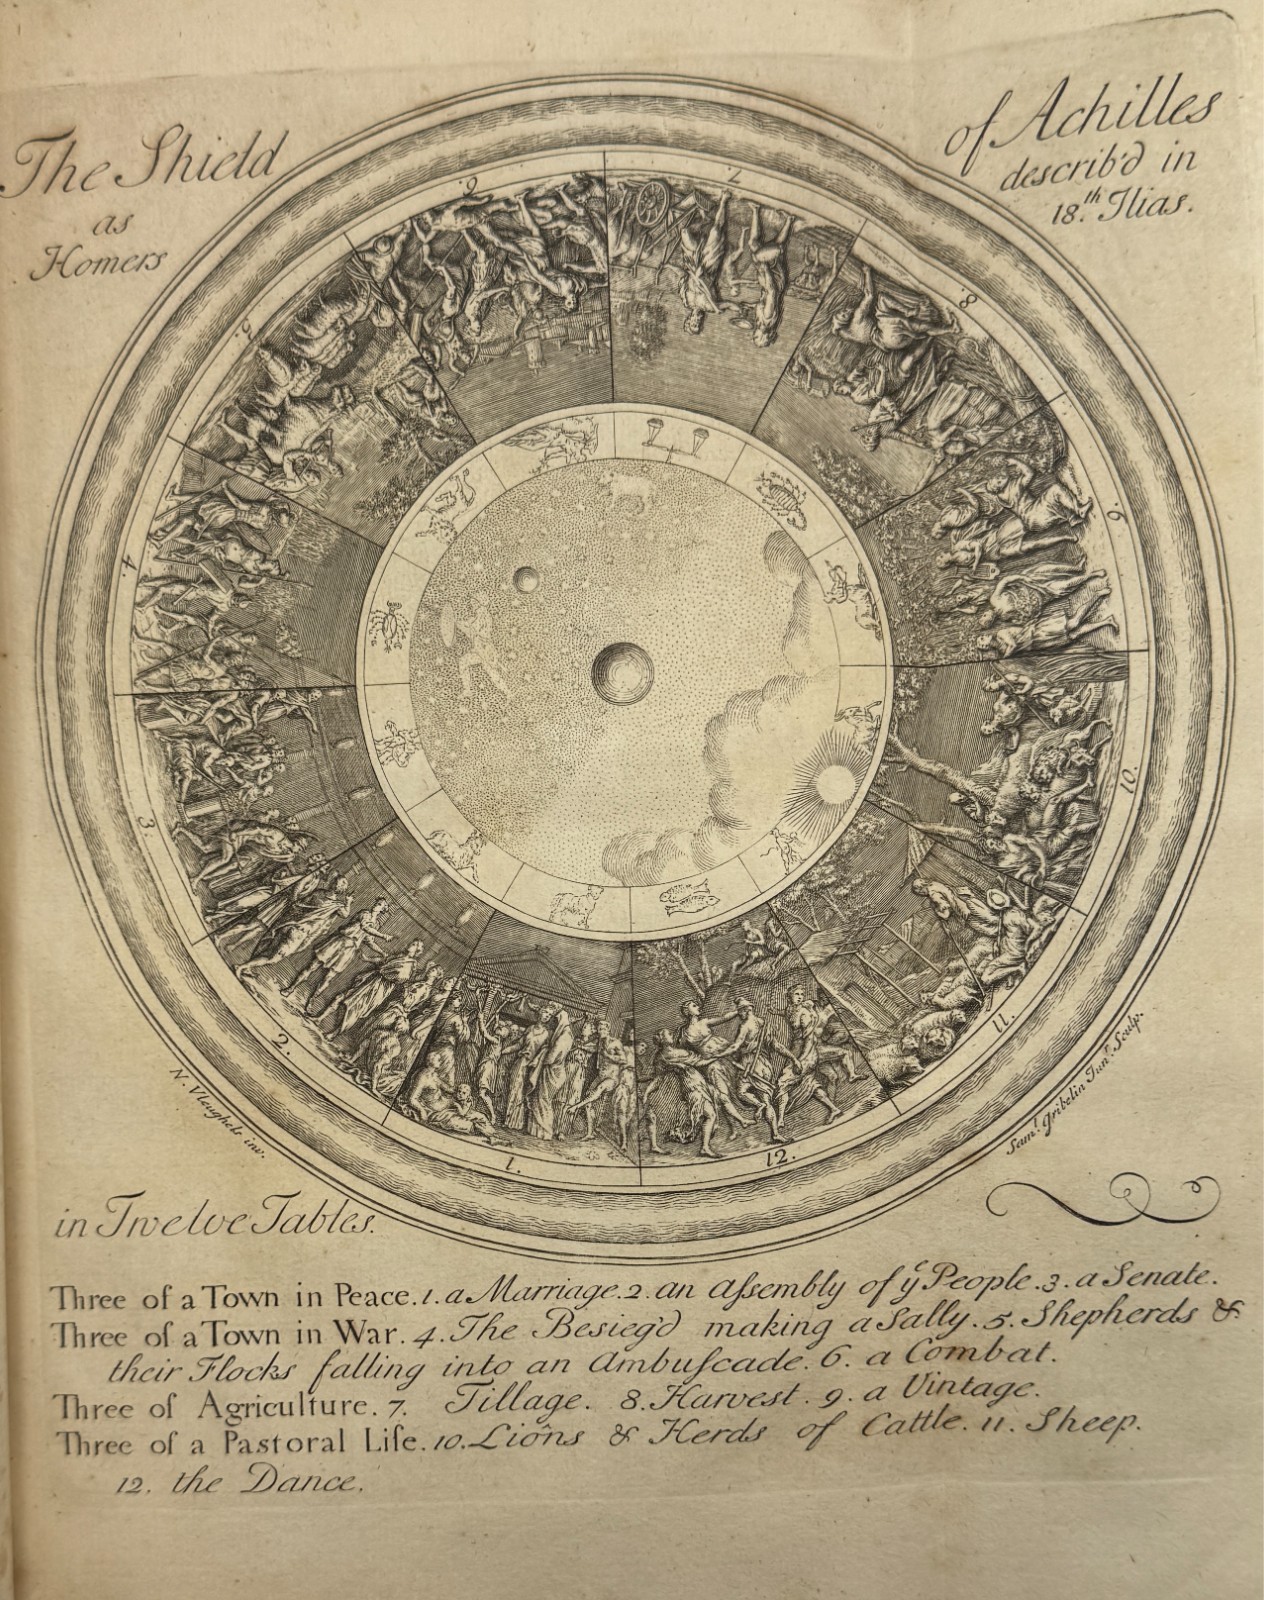 The Shield of Achilles
as describ'd in
Homers 18.th Ilias.
6.
7.
5.
8.
4.
9.
3.
10.
2.
11.
1.
12.
N. Vleughels inv.
Sam.l Gribelin Jun.r Sculp.
in Twelve Tables.
Three of a Town in Peace. 1. a Marriage. 2. an Aſsembly of yͤ People. 3. a Senate.
Three of a Town in War. 4. The Besieg'd making a Sally. 5. Shepherds &
their Flocks falling into an Ambuſcade. 6. a Combat.
Three of Agriculture. 7. Tillage. 8. Harvest. 9. a Vintage.
Three of a Pastoral Life. 10. Lions & Herds of Cattle. 11. Sheep.
12. the Dance.